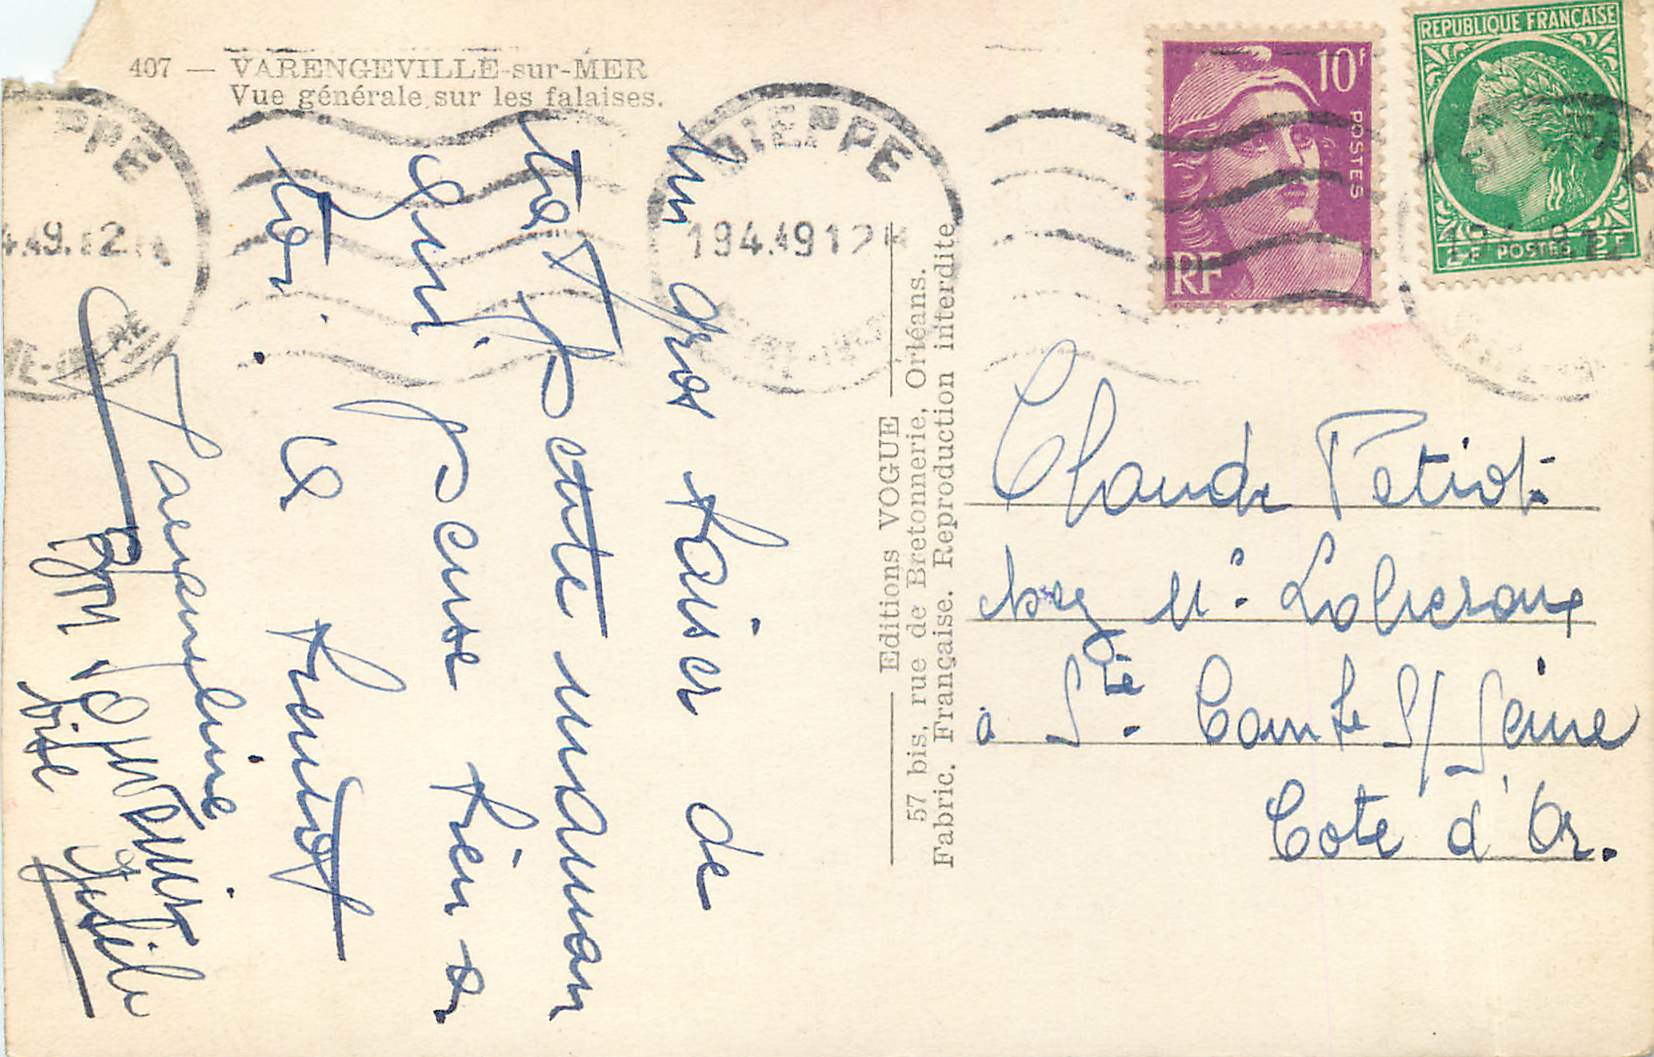 407 — VARENGEVILLE-sur-MER
Vue générale sur les falaises.
DIEPPE
19 4.49 12H
10F
POSTES
RF
REPUBLIQUE FRANÇAISE
2F POSTES 2F
Editions VOGUE
57 bis, rue de Bretonnerie, Orléans.
Fabric. Française. Reproduction interdite
Un gros baiser de
ta petite maman
qui pense bien à
toi. a bientot
Jacqueline
Bon souvenir
bise
Claude Petiot
chez Mr.
à Ste. Comte S/ Seine
Cote d'Or.